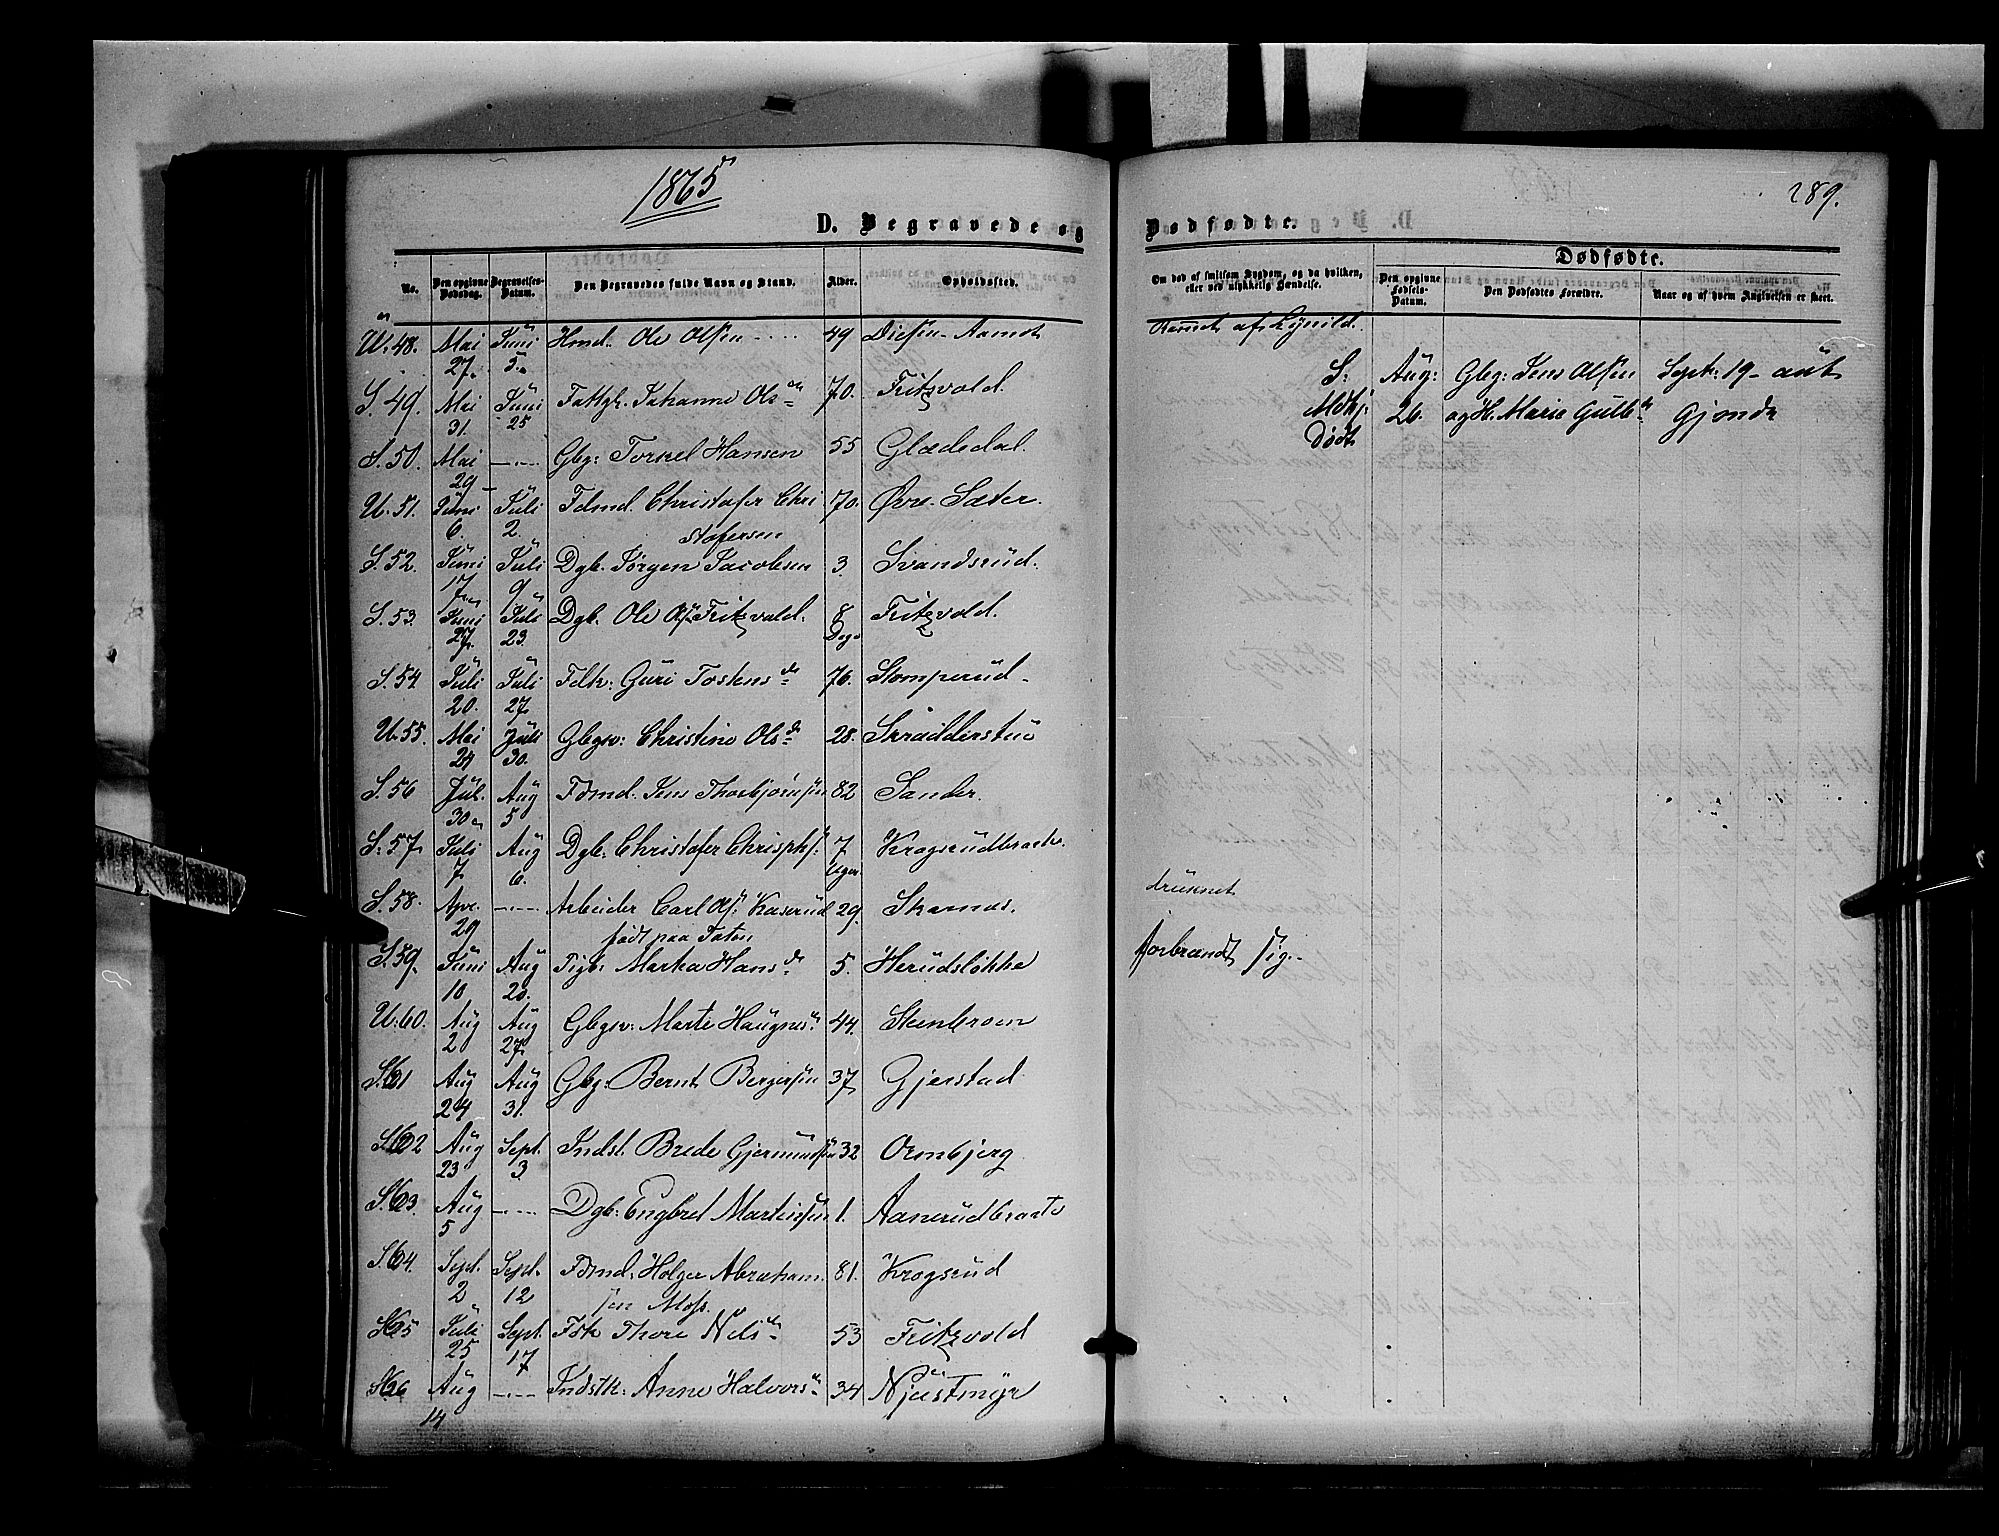 1865
289.
D. Begravede og Dødfødte.
No. Den opgivne Dødsdag. Begravelses-Datum. Den Begravedes fulde Navn og Stand. Alder. Opholdssted. Om død af smitsom Sygdom, og da hvilken, eller ved ulykkelig Hændelse.
Dødfødte.
Den opgivne Fødsels-Datum. Den Dødfødtes Forældre. Naar og af hvem Angivelsen er skeet.
U. 48. Mai 27. Juni 5. Hmd. Ole Olsen 49 Aamot
S. 49. Mai 31. Juni 25 Johanne Olsd. 70. Fritzvold
S. 50. Mai 29 Gbg: Torkel Hansen 55 Glædedal.
U. 51. Juni 6. Juli 2. Fdmd. Christofer Christofersen 70. Øvre-Sæter.
S. 52. Juni 17 Juli 9 Dgb. Jørgen Jacobsen 3. Svandsrud.
S. 53. Juni 27. Juli 23. Dgb. Ole Ols. Fritzvold. 8 Dage Fritzvold.
S. 54 Juli 20. Juli 27. Fdk: Guri Tostensd. 76. Stomperud
U. 55. Mai 24 Juli 30. Gbgsv: Christine Olsd. 28. Skrädderstu
S. 56 Jul. 30 Aug 5 Fdmd. Jens Thorbjørnsen 82 Sander.
S. 57. Juli 7. Aug 6. Dgb. Christofer 7 Uger Krogsrudbraate.
S. 58. Apr. 29 Arbeider Carl Ols. Kaserud 29. Skarnæs.
født paa Toten
druknet
S. 59. Juni 10 Aug 20. Pigb. Marthea Hansd. 5. Herudsløkke
forbrændt sig.
U. 60. Aug 2 Aug 27. Gbgsv: Marte Haugnesd. 44. Steenbroen
S. 61 Aug 24 Aug 31. Gbg: Bernt Bergersen 37 Gjerstad
S. 62 Aug 23 Sept. 3. Indst. Brede Gjermundsen 32 Ormbjerg
S. 63. Aug 5 Dgb: Engbret Martinsen 1. Aanerudbraate
S. 64. Sept. 2 Sept. 12 Fdmd. Holger Abrahamsen Moss. 81. Krogsrud
S. 65 Juli 25 Sept. 17 Fdk Thore Nilsd. 53 Fritzvold
S. 66 Aug 14 Indstk: Anne Halvorsd. 34 Njustmyr
S: Aug: 26. Gbg: Jens Olsen Sept: 19 -
og H. Marie Gulbd. Gjonde
Dødt